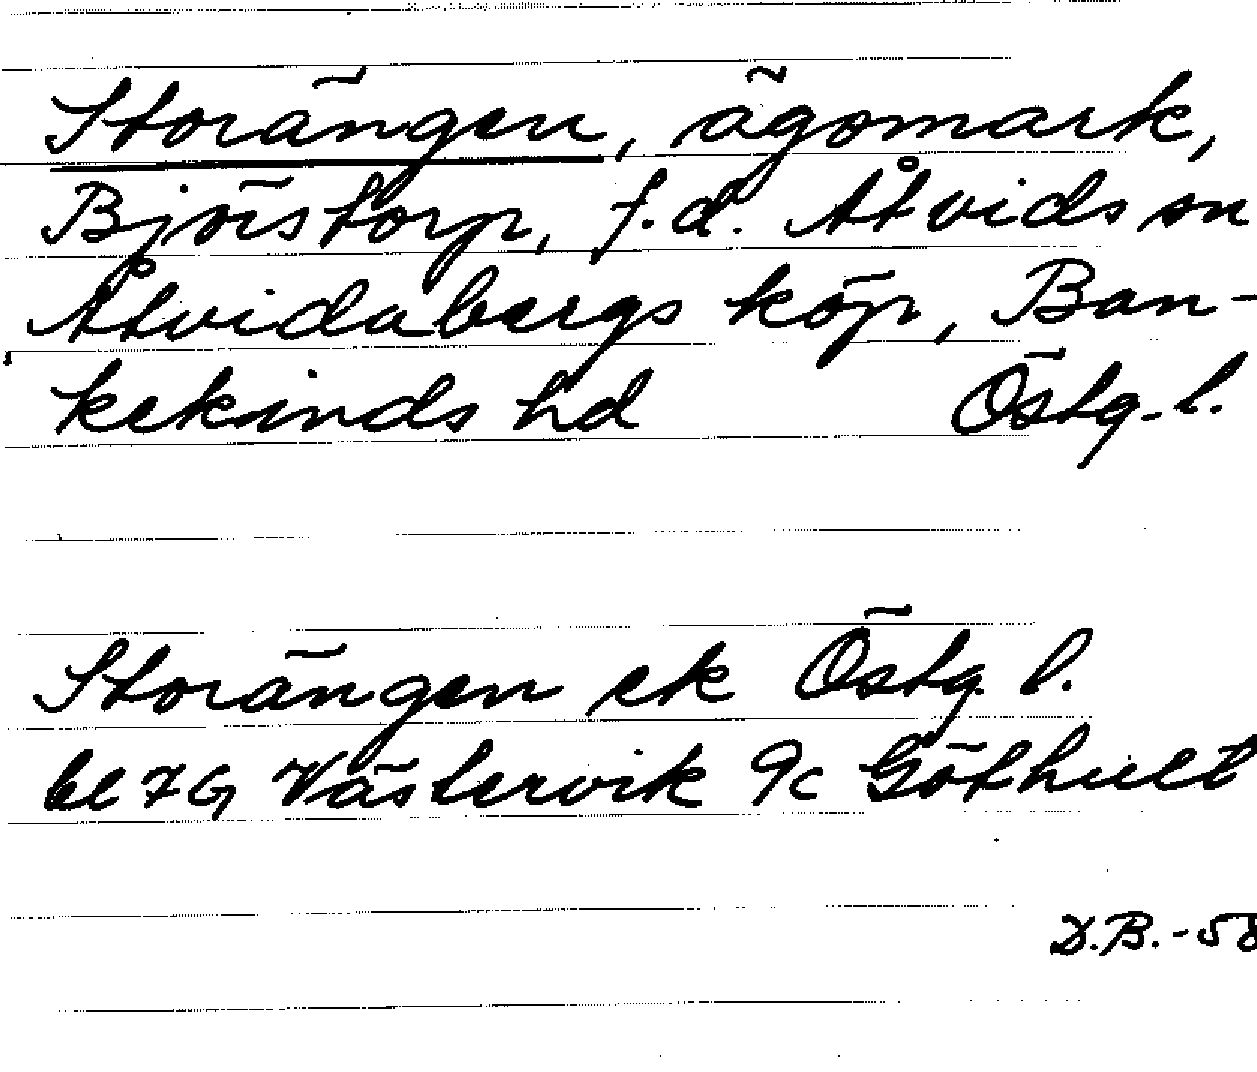 Storängen, ägomark,
Björstorp, f.d. Åtvids sn
Åtvidabergs köp, Ban-
kekinds hd Östg. l.
Storängen ek Östg. l.
bl 7G Västervik 9c Göthult
D.B.-58